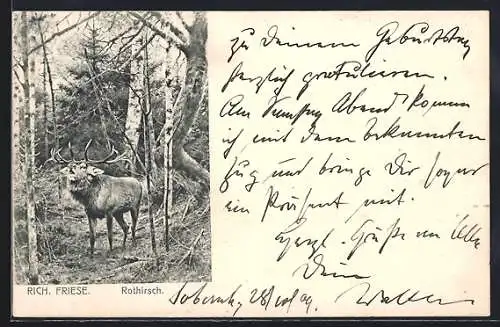 zu Deinem Geburtstag
herzlich gratulieren.
Am Samstag Abend komm
ich mit dem bekannten
Zug und bringe Dir sogar
ein Präsent mit.
Herzl. Grüße an Alle
Dein
RICH. FRIESE. Rothirsch.